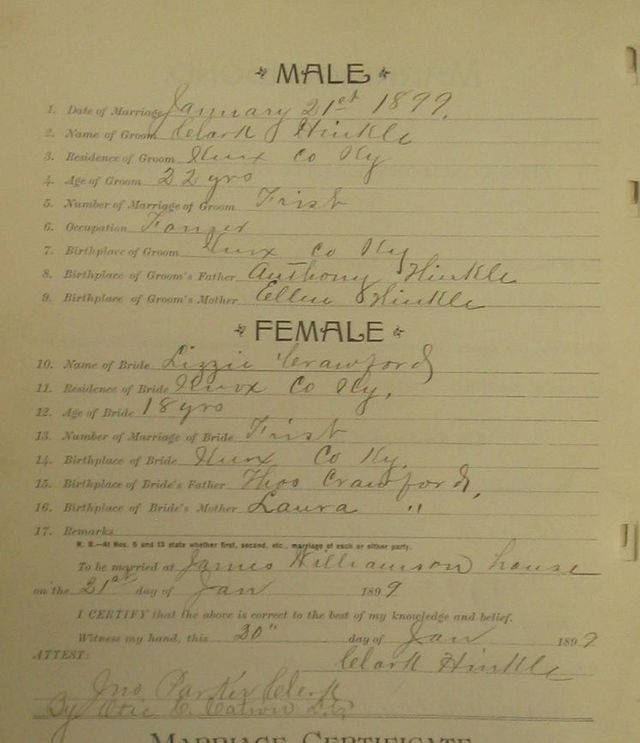 MALE
1. Date of Marriage January 21st 1899.
2. Name of Groom Clark Hinkle
3. Residence of Groom Knox Co Ky
4. Age of Groom 22 yrs
5. Number of Marriage of Groom Frist
6. Occupation Farmer
7. Birthplace of Groom Knox Co Ky
8. Birthplace of Groom's Father Anthony Hinkle
9. Birthplace of Groom's Mother Ellen Hinkle
FEMALE
10. Name of Bride Lizzie Crawford
11. Residence of Bride Knox Co Ky.
12. Age of Bride 18 yrs
13. Number of Marriage of Bride Frist
14. Birthplace of Bride Knox Co Ky.
15. Birthplace of Bride's Father Thos Crawford,
16. Birthplace of Bride's Mother Laura "
17. Remarks
N. B.—At Nos. 5 and 13 state whether first, second, etc., marriage of each or either party.
To be married at James Williamson house
on the 21st day of Jan 1899
I CERTIFY that the above is correct to the best of my knowledge and belief.
Witness my hand, this 20" day of Jan 1899
ATTEST: Clark Hinkle
Jno Parker Clerk
By C. Catron D.C.
MARRIAGE CERTIFICATE